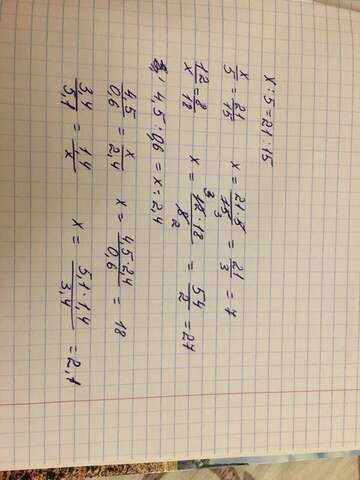 x : 5 = 21 : 15
x/5 = 21/15 x = 21·5/15 3 = 21/3 = 7
12/x = 8/18 x = 3 12·18/8 2 = 54/2 = 27
4,5 : 0,6 = x : 2,4
4,5/0,6 = x/2,4 x = 4,5·2,4/0,6 = 18
3,4/5,1 = 1,4/x x = 5,1·1,4/3,4 = 2,1